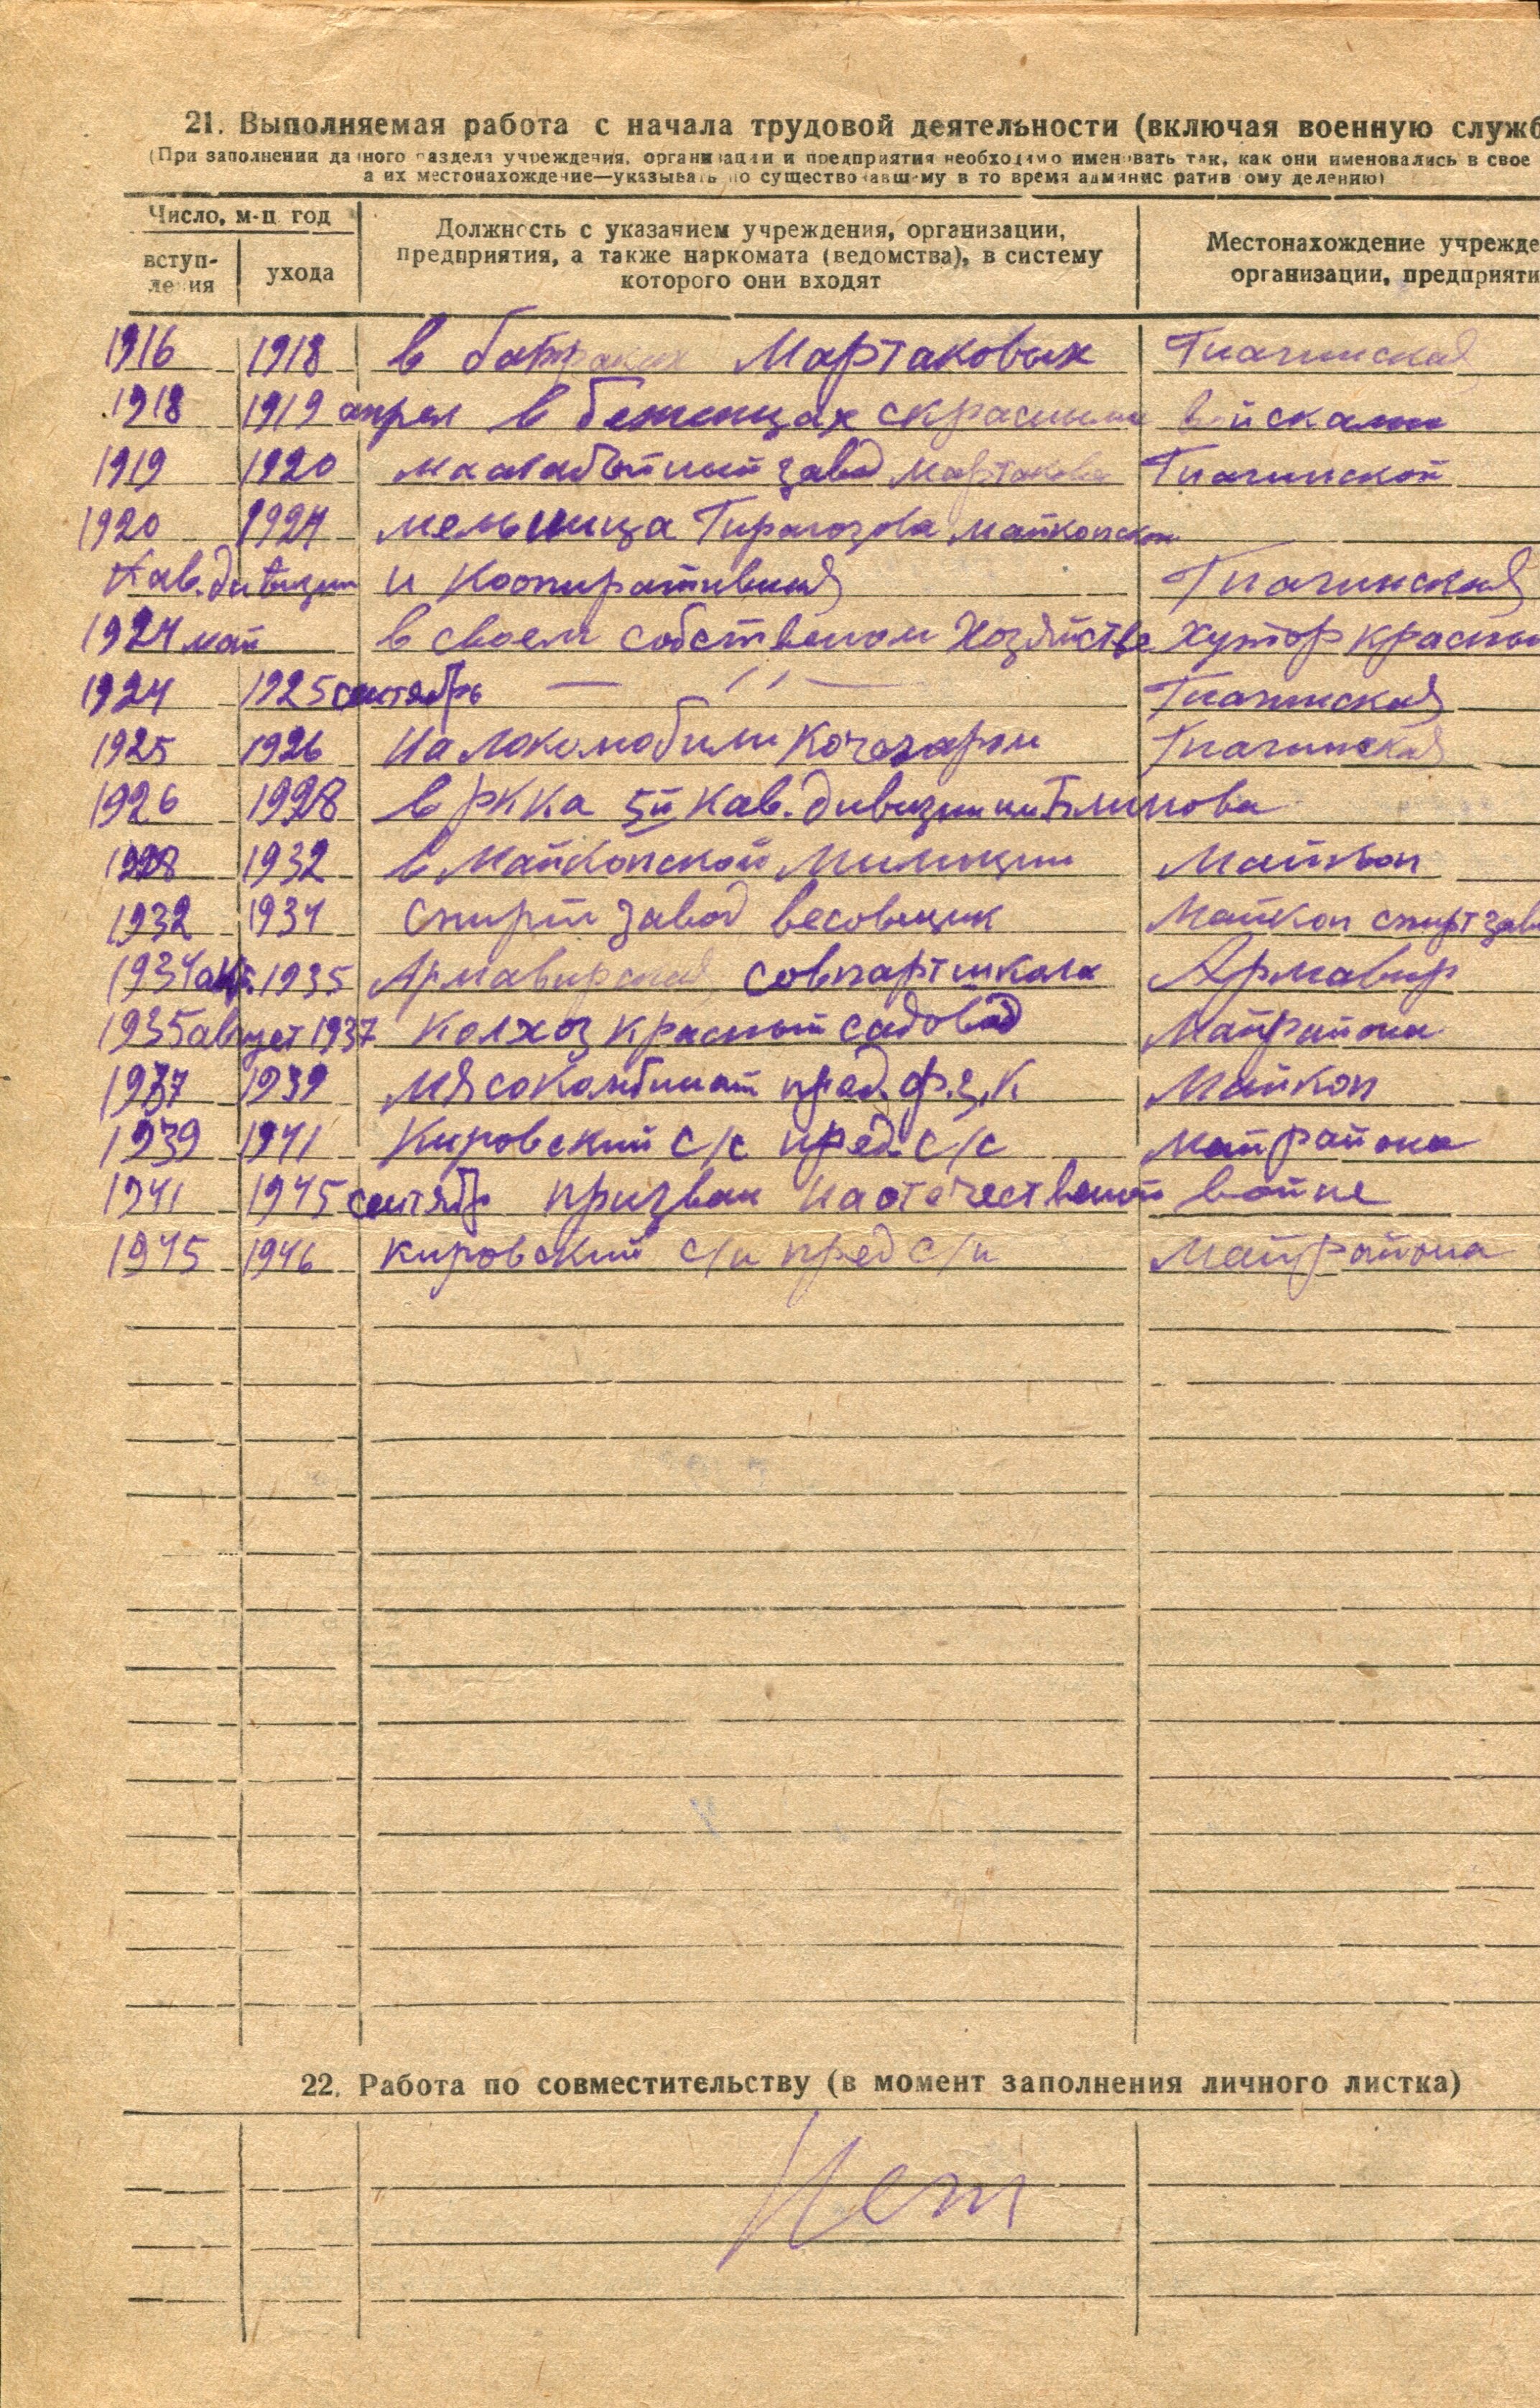 21. Выполняемая работа с начала трудовой деятельности (включая военную служб
(При заполнении данного раздела учреждения, организации и предприятия необходимо именовать так, как они именовались в свое
а их местонахождение—указывать по существовавшему в то время административному делению)
Число, м-ц год
вступ-
ления
ухода
Должность с указанием учреждения, организации,
предприятия, а также наркомата (ведомства), в систему
которого они входят
Местонахождение учрежде
организации, предприяти
1916 1918 в батраках Мартаковых Гиагинская
1918 1919 апрел в беженцах скрасными войсками
1919 1920 завод Мартакова Гиагинской
1920 1924 мельница Майкопской
Кав. дивизии и Кооперативная Гиагинская
1924 май в своем собственом Хозяйстве хутор красны
1924 1925 сентябрь — 〃 — Гиагинская
1925 1926 На локомобили Кочегаром Гиагинская
1926 1928 в РККА 5й Кав. дивизии им Блинова
1928 1932 в Майкопской Милиции Майкоп
1932 1934 Спирт завод весовщик Майкоп спирт заво
1934 1935 Армавирская совпартшкола Армавир
1935 август 1937 Колхоз красный садовод Майрайона
1937 1939 Мясокомбинат пред. ф.з.К Майкоп
1939 1941 Кировский с/с пред. с/с Майрайона
1941 1945 сентябр призван на отечественой войне
1945 1946 кировский с/и пред с/и Майрайона
22. Работа по совместительству (в момент заполнения личного листка)
Нет